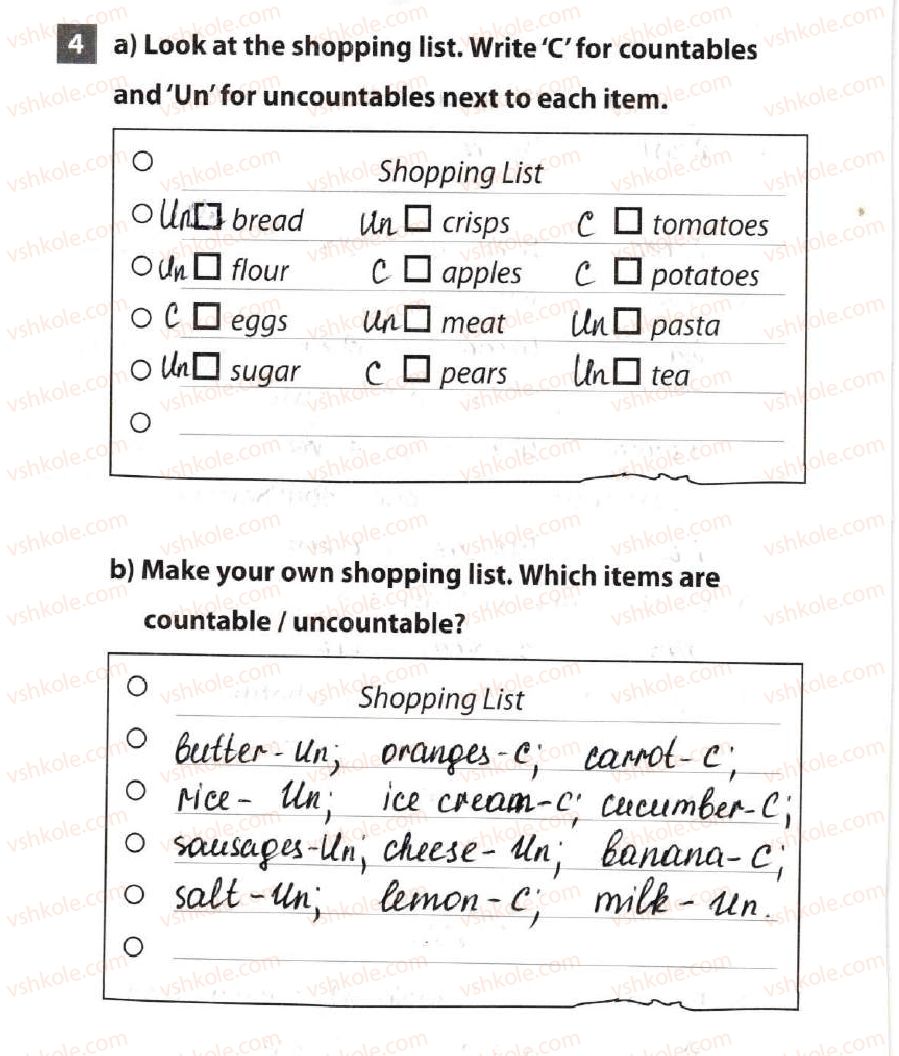 4 a) Look at the shopping list. Write ‘C’ for countables
and ‘Un’ for uncountables next to each item.
Shopping List
Un bread Un crisps C tomatoes
Un flour C apples C potatoes
C eggs Un meat Un pasta
Un sugar C pears Un tea
b) Make your own shopping list. Which items are
countable / uncountable?
Shopping List
butter - Un; oranges - C; carrot - C;
rice - Un; ice cream - C; cucumber - C;
sausages - Un; cheese - Un; banana - C;
salt - Un; lemon - C; milk - Un.
vshkole.com